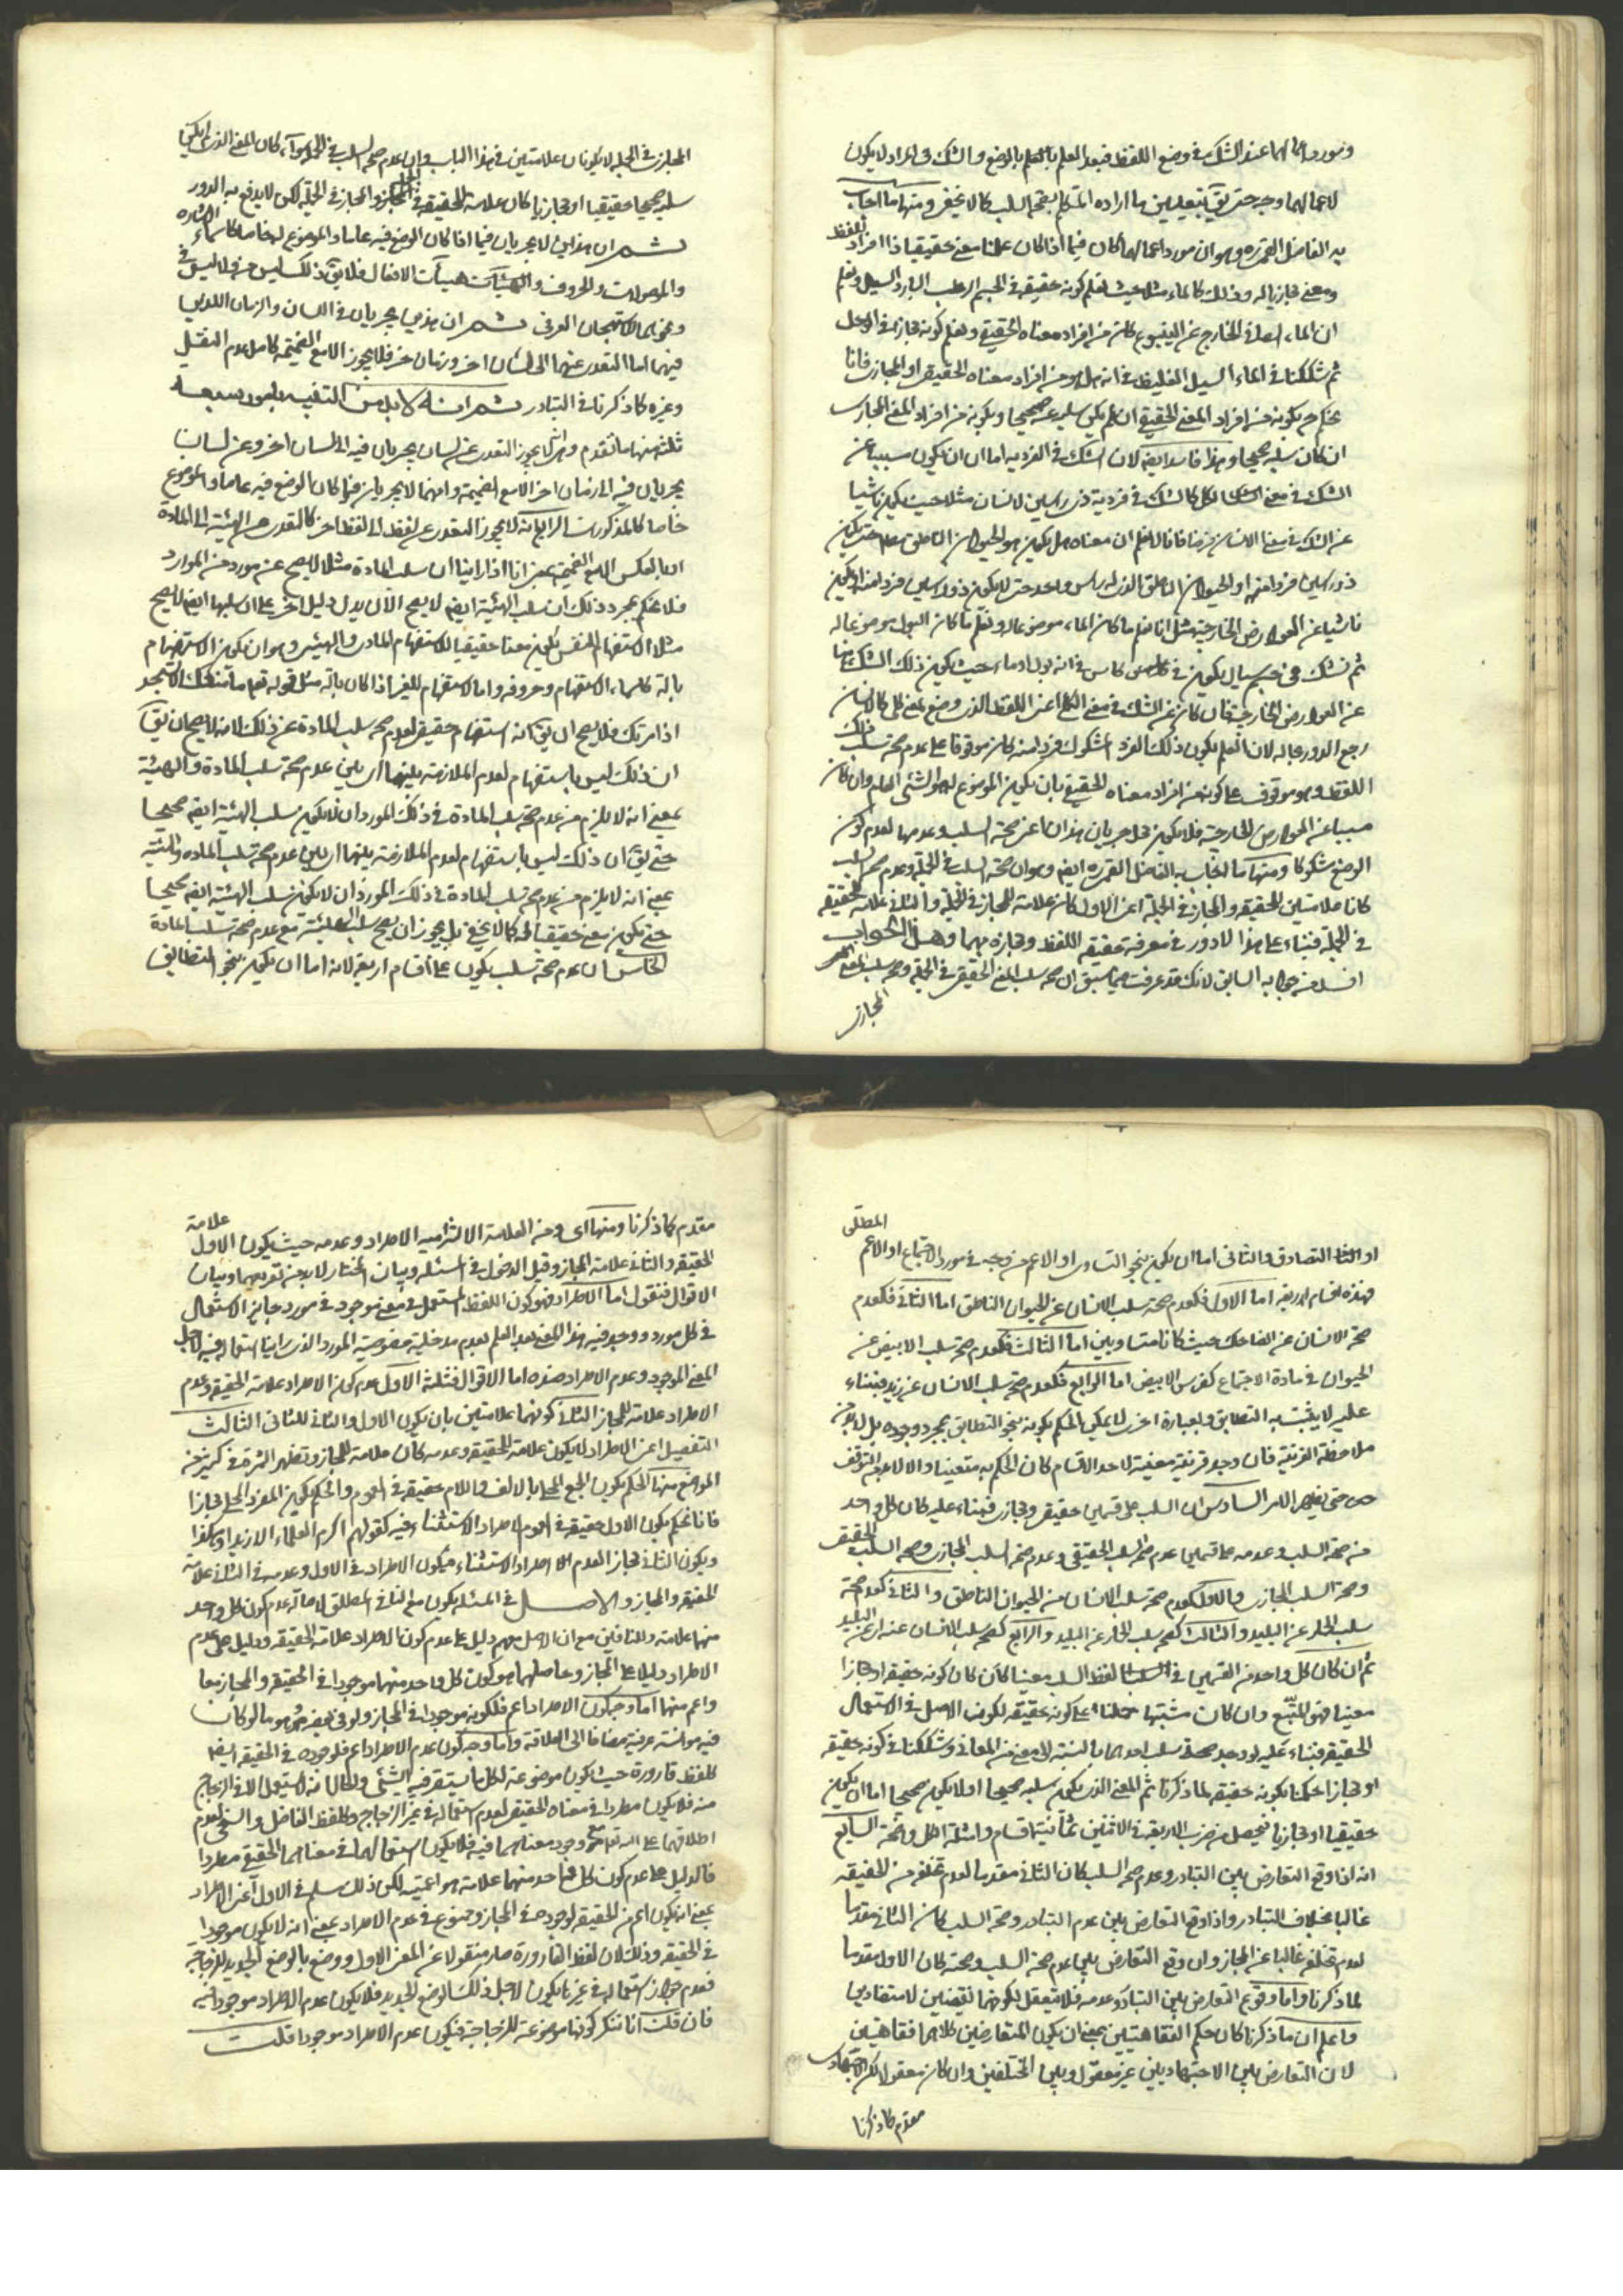 ومورد اعمالهما عند الشك في وضع اللفظ فبعد العلم بالوضع والشك في المراد لا يكون
لاعمالهما وجه حتى يق بتعيين ما اراده المتكلم بصحة السلب كما لا يخفى ومنها ما اجاب
به الفاضل القمي ره وهو ان مورد اعمالهما كان فيما اذا كان علمنا معنى حقيقيا ذا افراد للفظ
ومعنى مجازيا له وذلك كالماء مثلا حيث نعلم كونه حقيقة في الجسم الرطب البارد السيال ونعلم
ان الماء الصافي الخارج عن الينبوع كان من افراد معناه الحقيقي ونعلم كونه مجازا في الوحل
ثم شككنا في الماء السيل الغليظ في انه هل هو من افراد معناه الحقيقي او المجازي فانا
نحكم بكونه من افراد المعنى الحقيقي ان لم يكن سلبه عنه صحيحا وبكونه من افراد المعنى المجازي
ان كان سلبه صحيحا وهذا فاسد ايضا لان الشك في الفردية اما ان يكون مسببا عن
الشك في معنى الكل كالشك في فردية ذي راسين لانسان مثلا حيث يكون ناشيا
عن الشك في معنى الانسان فانا لا نعلم ان معناه هل يكون هو الحيوان الناطق مطلقا حتى يكون
ذو راسين فردا منه او الحيوان الناطق الذي له راس واحد حتى لا يكون ذو راسين فردا منه او يكون
ناشيا عن العوارض الخارجية مثل انا نعلم ما كان الماء موضوعا له ونعلم ما كان البول موضوعا له
ثم نشك في جسم سيال يكون في كاس في انه بول او ماء حيث يكون ذلك الشك ناشيا
عن العوارض الخارجية فان كان عن الشك في معنى الكلي اعني اللفظ الذي وضع لمعنى كلي كالانسان
رجع الدور بحاله لان العلم بكون ذلك الفرد المشكوك فردا منه كان موقوفا على عدم صحة سلب ذلك
اللفظ وهو موقوف على كونه من افراد معناه الحقيقي بان يكون الموضوع له هو الشئ العام وان كان
مسببا عن العوارض الخارجية فلا يكون محل جريان هذان اعني صحة السلب وعدمها لعدم كون
الوضع مشكوكا ومنها ما اجاب به الفاضل القمي ره ايضا وهو ان صحة السلب في الجملة وعدم صحة السلب
كانا علامتين للحقيقة والمجاز في الجملة اعني الاول كان علامة للمجاز في الجملة والثاني علامة للحقيقة
في الجملة فبناء على هذا لا دور في معرفة حقيقة اللفظ ومجازه بهما وهذا الجواب
افسد من جوابه السابق لانك قد عرفت مما سبق ان صحة سلب المعنى الحقيقي في الجملة وصحة سلب المعنى
المجازي
المجازي في الجملة لا يكونان علامتين في هذا الباب وان عدم صحة السلب في الجملة سواء كان المعنى الذي لم يكن
سلبه صحيحا حقيقيا او مجازيا كان علامة للحقيقة في الجملة والمجاز في الجملة لكن لا يدفع به الدور
ثم ان هذين لا يجريان فيما اذا كان الوضع فيه عاما والموضوع له خاصا كاسماء الاشارة
والموصولات والحروف والهيئات هيئات الافعال فلا يق ذلك ليس من ولا ليس في
ونحوهما للاستهجان العرفي ثم ان هذين يجريان في اللسان والزمان اللذين
فيهما اما التعدي عنهما الى لسان اخر وزمان اخر فلا يجوز الا مع الضميمة كاصل عدم النقل
وغيره كما ذكرنا في التبادر ثم انه لا بد من التنبيه بامور سبعة
ثلثة منها ما تقدم وهي انه لا يجوز التعدي عن لسان يجريان فيه الى لسان اخر وعن لسان
يجريان فيه الى زمان اخر الا مع الضميمة وانهما لا يجريان فيما كان الوضع فيه عاما والموضوع
خاصا كالمذكورات الرابع انه لا يجوز التعدي عن لفظ الى لفظ اخر كالتعدي من الهيئة الى المادة
او بالعكس الا مع الضميمة يعني انا اذا راينا ان سلب المادة مثلا لا يصح عن مورد من الموارد
فلا نحكم بمجرد ذلك ان سلب الهيئة ايضا لا يصح الا ان يدل دليل اخر على ان سلبها ايضا لا يصح
مثلا الاستفهام النفسي يكون معنا حقيقيا للاستفهام المادي والهيئي وهو ان يكون الاستفهام
بآلة كاسماء الاستفهام وحروفه واما الاستفهام للغير اذا كان بآلة مثل قوله تعالى ما منعك الا تسجد
اذ امرتك فلا يصح ان يق انه استفهام حقيقي لعدم صحة سلب المادة عن ذلك لانه لا يصح ان يق
ان ذلك ليس باستفهام لعدم الملازمة بينهما اي بين عدم صحة سلب المادة والهيئة
بمعنى انه لا يلزم من عدم صحة سلب المادة في ذلك المورد ان لا يكون سلب الهيئة ايضا صحيحا
حتى يق ان ذلك ليس باستفهام لعدم الملازمة بينهما اي بين عدم صحة سلب المادة والهيئة
بمعنى انه لا يلزم من عدم صحة سلب المادة في ذلك المورد ان لا يكون سلب الهيئة ايضا صحيحا
حتى يكون معنى حقيقيا له كما لا يخفى بل يجوز ان يصح سلب الهيئة مع عدم صحة سلب المادة
الخامس ان عدم صحة سلب يكون على اقسام اربعة لانه اما ان يكون بنحو التطابق
المطلق
او التصادق والثاني اما ان يكون بنحو التساوي او الاعم من وجه في مورد الاجتماع او الاعم
فهذه اقسام اربعة اما الاول فكعدم صحة سلب الانسان عن الحيوان الناطق اما الثاني فكعدم
صحة الانسان عن الضاحك حيث كانا متساويين اما الثالث فكعدم صحة سلب الابيض عن
الحيوان في مادة الاجتماع كفرس الابيض اما الرابع فكعدم صحة سلب الانسان عن زيد فبناء
عليه لا يثبت به التطابق وبعبارة اخرى لا يمكن الحكم بكونه بنحو التطابق بمجرد وجوده بل لا بد من
ملاحظة القرينة فان وجد قرينة معينة لاحد الاقسام كان الحكم به متعينا والا لا بد من التوقف
حتى يظهر الامر السادس ان السلب على قسمين حقيقي ومجازي فبناء عليه كان كل واحد
من صحة السلب وعدمه على قسمين عدم صحة السلب الحقيقي وعدم صحة السلب المجازي وصحة السلب الحقيقي
وصحة السلب المجازي والاول كعدم صحة سلب الانسان من الحيوان الناطق والثاني كعدم صحة
سلب الحمار عن البليد والثالث كصحة سلب الحمار عن البليد والرابع كصحة سلب الانسان عنه اي عن البليد
ثم ان كان كل واحد من القسمين في لفظ السلب معينا كان كونه حقيقة او مجازا
معينا فهو المتبع وان كان مشتبها حملنا على كونه حقيقة لكون الاصل في الاستعمال
الحقيقة فبناء عليه لو وجد صحة سلب احدهما بالنسبة الى معنى من المعاني وشككنا في كونه حقيقة
او مجازا حكمنا بكونه حقيقة لما ذكرنا ثم المعنى الذي يكون سلبه صحيحا او لا يكون صحيحا اما ان يكون
حقيقيا او مجازيا فيحصل من ضرب الاربعة في الاثنين ثمانية اقسام وامثلة الكل واضحة السابع
انه اذا وقع التعارض بين التبادر وعدم صحة السلب كان الثاني مقدما لعدم تخلفه من الحقيقة
غالبا بخلاف التبادر واذا وقع التعارض بين عدم التبادر وصحة السلب كان الثاني مقدما
لعدم تخلفه غالبا عن المجاز وان وقع التعارض بين عدم صحة السلب وصحته كان الاول مقدما
لما ذكرنا واما وقوع التعارض بين التبادر وعدمه فلا يتعقل لكونهما نقيضين لا متضادين
واعلم ان ما ذكرنا كان حكم الفقاهتيين بمعنى ان يكون المتعارضين كلاهما فقاهتيين
لان التعارض بين الاجتهاديين غير معقول وبين المختلفين وان كان معقولا لكن الاجتهادي
مقدم كما ذكرنا
مقدم كما ذكرنا ومنها اي ومن العلامة الالتزامية الاطراد وعدمه حيث يكون الاول علامة
الحقيقة والثاني علامة المجاز وقبل الدخول في المسئلة وبيان المختار لا بد من تعريفهما وبيان
الاقوال فنقول اما الاطراد فهو كون اللفظ المستعمل في معنى موجود في مورد جايز الاستعمال
في كل مورد وجد فيه هذا المعنى بعد العلم بعدم مدخلية خصوصية المورد الذي راينا استعماله فيه لاجل
المعنى الموجود وعدم الاطراد ضده اما الاقوال فثلثة الاول عدم كون الاطراد علامة الحقيقة وعدم
الاطراد علامة للمجاز الثاني كونهما علامتين بان يكون الاول والثاني للثاني الثالث
التفصيل اعني الاطراد لا يكون علامة للحقيقة وعدمه كان علامة للمجاز وتظهر الثمرة في كثير من
المواضع منها الحكم بكون الجمع المحلى بالالف واللام حقيقة في العموم والحكم بكون المفرد المحلى مجازا
فانا نحكم بكون الاول حقيقة في العموم لاطراد الاستثناء فيه كقولهم اكرم العلماء الا زيدا وبكرا
ويكون الثاني مجازا لعدم اطراد الاستثناء فيكون الاطراد في الاول وعدمه في الثاني علامة
الحقيقة والمجاز والاصل في المسئلة يكون مع النافي المطلق لاصالة عدم كون كل واحد
منهما علامة وللنافين مع ان الاصل معهم دليل على عدم كون الاطراد علامة الحقيقة ودليل على عدم
الاطراد دليلا على المجاز وحاصلهما هو كون كل واحد منهما موجودا في الحقيقة والمجاز معا
واعم منهما اما وجه كون الاطراد اعم فلكونه موجودا في المجاز ولو في بعض وهو ما لو كان
فيه موانسة عرفية مضافا الى العلاقة واما وجه كون عدم الاطراد اعم فلوجوده في الحقيقة ايضا
كلفظ قارورة حيث يكون موضوعة لكل ما يستقر فيه الشئ والحال انه لا يستعمل الا في الزجاج
منه فلا يكون مطردا في معناه الحقيقي لعدم استعماله في غير الزجاج وكلفظ الفاضل والسخي لعدم
اطلاقهما على الله تعالى مع وجود معناهما فيه فلا يكون استعمالهما في معناهما الحقيقي مطردا
فالدليل على عدم كون كل واحد منهما علامة هو اعميته لكن ذلك مسلم في الاول اعني الاطراد
بمعنى انه يكون اعم من الحقيقة لوجوده في المجاز وممنوع في عدم الاطراد بمعنى انه لا يكون موجودا
في الحقيقة وذلك لان لفظ القارورة صار منقولا عن المعنى الاول ووضع بالوضع الجديد للزجاجة
فعدم جواز استعماله في غيرها يكون لاجل ذلك الوضع الجديد فلا يكون عدم الاطراد موجودا فيه
فان قلت انا ننكر كونها موضوعة للزجاجة فيكون عدم الاطراد موجودا قلت